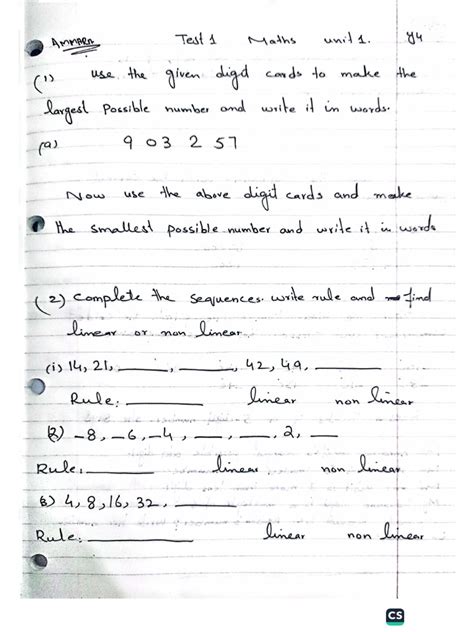 AMMAR Test 1 Maths unit 1. Y4
(1) use the given digid cards to make the
largest possible number and write it in words.
(a) 9 03 2 57
Now use the above digit cards and make
the smallest possible number and write it in words
(2) Complete the sequences. write rule and find
linear or non linear.
(i) 14, 21, ______, ______, 42, 49, ______
Rule: ______ linear non linear
(2) -8, -6, -4, ___, ___, 2, ___
Rule: ______ linear non linear
(3) 4, 8, 16, 32, ______
Rule: ______ linear non linear
CS